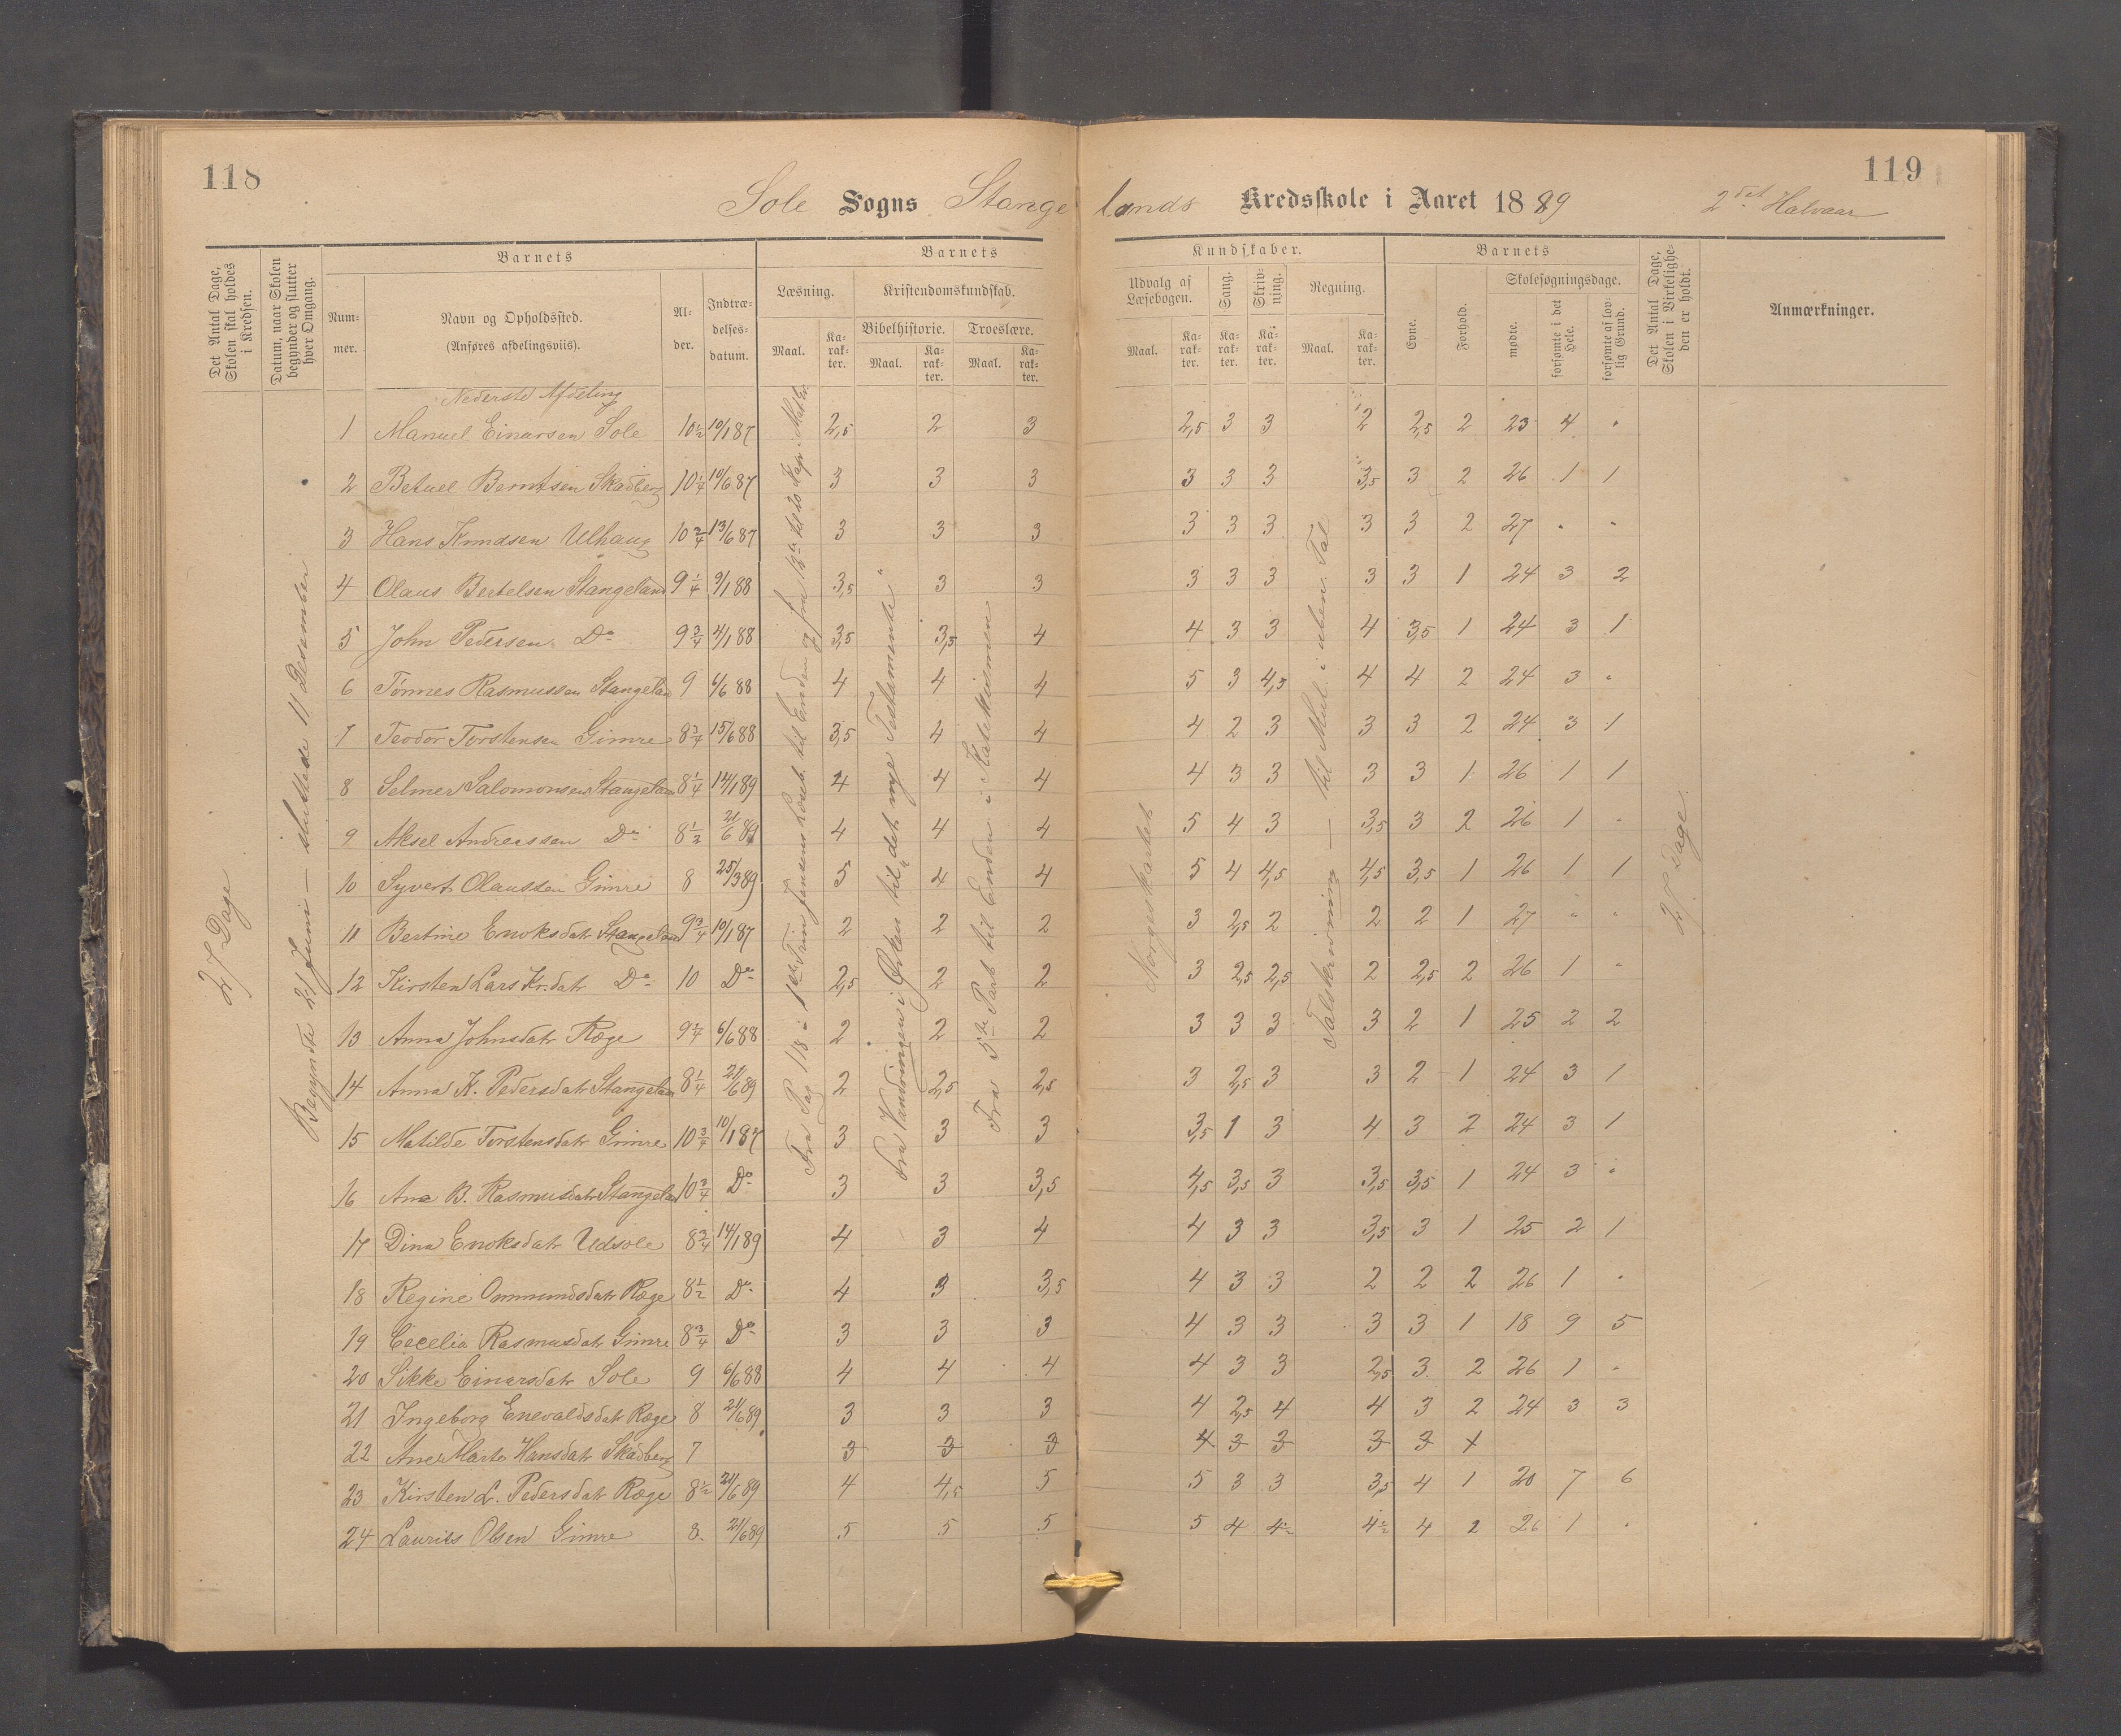 118
119
Sole Sogns Stangelands Kredsskole i Aaret 1889 2det Halvaar
Det Antal Dage, Skolen skal holdes i Kredsen.
Datum, naar Skolen begynder og slutter hver Omgang.
Barnets
Nummer.
Navn og Opholdssted. (Anføres afdelingsviis).
Alder.
Indtrædelsesdatum.
Barnets Kundskaber.
Læsning. Maal. Karakter.
Kristendomskundskab.
Bibelhistorie. Maal. Karakter.
Troeslære. Maal. Karakter.
Udvalg af Læsebogen. Maal. Karakter.
Sang. Karakter.
Skrivning. Karakter.
Regning. Maal. Karakter.
Barnets
Evne.
Forhold.
Skolesøgningsdage.
mødte.
forsømte i det Hele.
forsømte af lovlig Grund.
Det Antal Dage, Skolen i Virkeligheden er holdt.
Anmærkninger.
27 Dage
Begyndte 21 Juni — sluttede 11 Desember
Fra Pag 118 i 1ste Trin Jensens Læseb. til Enden og fra
Fra Vandringen i Ørken til "det nye Testamente"
Fra 5te Part til Enden i Katekismen
Norgeskartet
Talskrivning — til Mul. i uben. Tal
27 Dage
Nederste Afdeling
1 Manuel Einarsen Sole 10½ 10/1 87 2,5 2 3 2,5 3 3 2 2,5 2 23 4 "
2 Betuel Berntsen Skadberg 10¼ 10/6 87 3 3 3 3 3 3 3,5 3 2 26 1 1
3 Hans Knudsen Ulhaug 10¾ 13/6 87 3 3 3 3 3 3 3 3 2 27 " "
4 Olaus Bertelsen Stangeland 9¼ 9/1 88 3,5 3 3 3 3 3 3 3 1 24 3 2
5 John Pedersen Do 9¾ 4/1 88 3,5 3,5 4 4 3 3 4 3,5 1 24 3 1
6 Tönnes Rasmussen Stangelan 9 6/6 88 4 4 4 5 3 4,5 4 4 2 24 3 "
7 Teodor Torstensen Gimre 8¾ 15/6 88 3,5 4 4 4 2 3 3 3 2 24 3 1
8 Selmer Salomonsen Stangelan 8¼ 14/1 89 4 4 4 4 3 3 3 3 1 26 1 1
9 Aksel Andreassen Do 8½ 21/6 89 4 4 4 5 4 3 3,5 3 2 26 1 "
10 Syvert Olaussen Gimre 8 25/3 89 5 4 4 5 4 4,5 4,5 3,5 1 26 1 1
11 Bertine Enoksdatr Stangeland 9¾ 10/1 87 2 2 2 3 2,5 2 2 2 1 27 " "
12 Kirsten Lars Kr.datr Do 10 Do 2,5 2 2 3 2,5 2,5 2 2,5 2 26 1 "
13 Anna Johnsdatr Ræge 9¼ 6/6 88 2 2 2 3 3 3 3 2 1 25 2 2
14 Anna K. Pedersdatr Stangelan 8¼ 21/6 89 2 2,5 2,5 3 2,5 3 3 2 1 24 3 1
15 Matilde Torstensdatr Gimre 10¾ 10/1 87 3 3 3 3,5 1 3 4 3 2 24 3 1
16 Ana B. Rasmusdatr Stangelan 10¾ Do 3 3 3,5 4,5 3,5 3 3,5 3,5 1 24 3 "
17 Dina Enoksdatr Udsole 8¾ 14/1 89 4 3 4 4 3 3 3,5 3 1 25 2 1
18 Regine Ommundsdatr Ræge 8½ Do 4 3 3,5 4 3 3 2 2 2 26 1 "
19 Cecelia Rasmusdatr Gimre 8¾ Do 3 3 3 4 3 3 3 3 1 18 9 5
20 Sikke Einarsdatr Sole 9 6/6 88 4 4 4 4 3 3 2,5 3 2 26 1 "
21 Ingeborg Enevaldsdatr Ræge 8 21/6 89 3 3 3 4 2,5 4 4 3 2 24 3 3
22 Ane Marta Hansdatr Skadberg 7 3 3 3 4 3 3 3 3 1
23 Kirsten L. Pedersdatr Ræge 8½ 21/6 89 4 4,5 5 5 3 3 3,5 4 1 20 7 6
24 Laurits Olsen Gimre 8 21/6 89 5 5 5 5 4 4½ 4½ 4 2 26 1 "